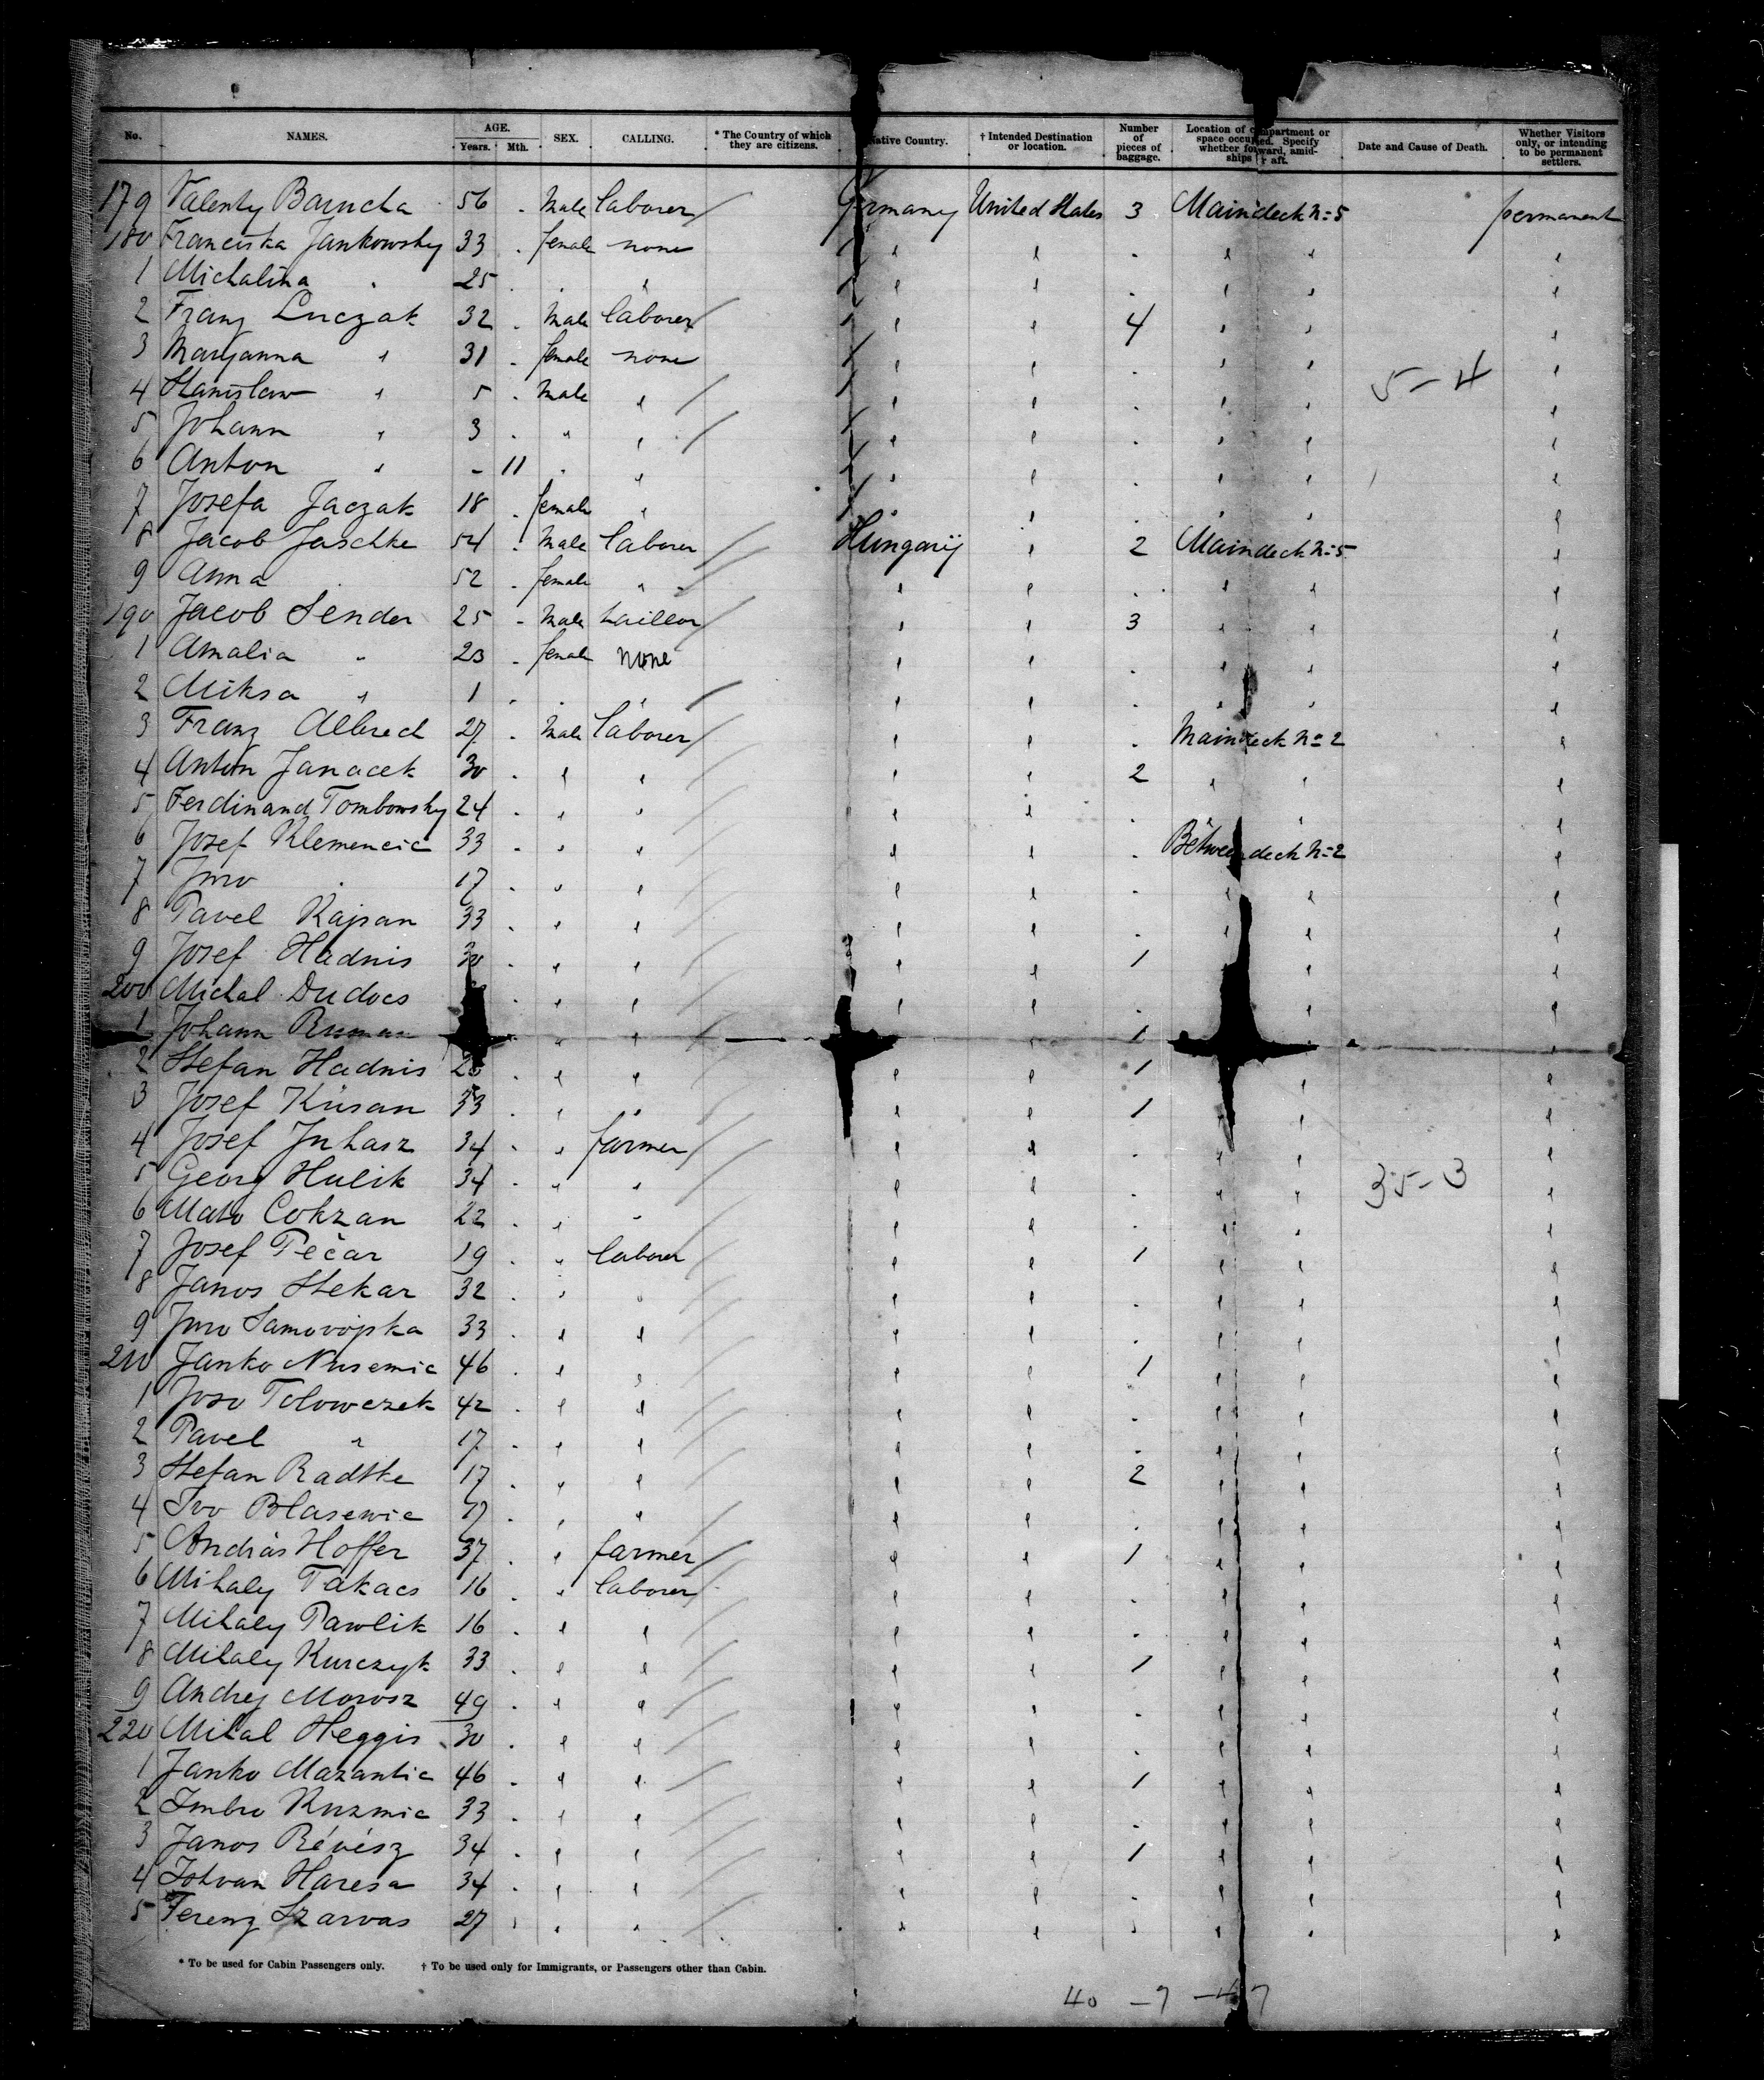 No. NAMES. AGE. Years. Mth. SEX. CALLING. * The Country of which they are citizens. Native Country. † Intended Destination or location. Number of pieces of baggage. Location of compartment or space occupied. Specify whether forward, amidships or aft. Date and Cause of Death. Whether Visitors only, or intending to be permanent settlers.
179 Valenty 56 . Male laborer Germany United States 3 Maindeck No 5 permanent
180 Franciska Jankowsky 33 . female none " " . " " "
1 Michalina " 25 . . " " " . " " "
2 Franz Luczak 32 . Male laborer " " 4 " " "
3 Maryanna " 31 . female none " " . " " "
4 Stanislaw " 5 . Male " " " . " " 5-4 "
5 Johann " 3 . " " " " . " " "
6 Anton " - 11 . " " " . " " "
7 Josefa Jaczak 18 . female " " " . " " "
8 Jacob Jaschke 54 . Male laborer Hungary " 2 Maindeck No 5 "
9 Anna . 52 . female " " " . " " "
190 Jacob Sender 25 - Male taillor " " 3 " " "
1 Amalia " 23 . female none " " . " " "
2 Miksa " 1 . . " " " . " " "
3 Franz Albrecd 27 . Male laborer " " . Maindeck No 2 "
4 Anton Janacek 30 . " " " " 2 " " "
5 Ferdinand Tombowsky 24 . " " " " . " "
6 Josef Klemencic 33 . " " " " . Betweendeck No 2 "
7 Juro . 17 . " " " " . " " "
8 Pavel Kajsan 33 . " " " " . " " "
9 Josef Hadnis 30 . " " " " 1 " " "
200 Michal Dudocs . " " " " . " " "
1 Johann . " " " 1 "
2 Stefan Hadnis . " " " " 1 " "
3 Josef Kusan 33 . " " " " 1 " " "
4 Josef Juhasz 34 . " farmer " " . " " "
5 Georg Hulik 34 . " " " " . " " 35-3 "
6 Mato Cokzan 22 . " " " " . " " "
7 Josef Pečar 19 . " laborer " " 1 " " "
8 Janos Stekar 32 . " " " " . " " "
9 Juro Samovojska 33 . " " " " . " " "
210 Janko Nusemic 46 . " " " " 1 " " "
1 Joso Tolowczek 42 . " " " " . " " "
2 Pavel " 17 . " " " " . " " "
3 Stefan Radtke 17 . " " " " 2 " " "
4 Ivo Blasewic 17 . " " " " . " " "
5 András Hoffer 37 . " farmer " " 1 " " "
6 Mihaly Takacs 16 . " laborer " " . " " "
7 Mihaly Pawlik 16 . " " " " . " " "
8 Mihaly Kurczyk 33 . " " " " 1 " " "
9 Andrej Morosz 49 . " " " " . " " "
220 Mihal Heggis 30 . " " " " . " " "
1 Janko Mazantic 46 . " " " " 1 " " "
2 Imbro Kuzmic 33 . " " " " . " " "
3 Janos Révész 34 . " " " " 1 " " "
4 Istvan Haresa 34 . " " " " . " " "
5 Ferenz Szarvas 27 . " " " " . " " "
* To be used for Cabin Passengers only. † To be used only for Immigrants, or Passengers other than Cabin.
40 - 7